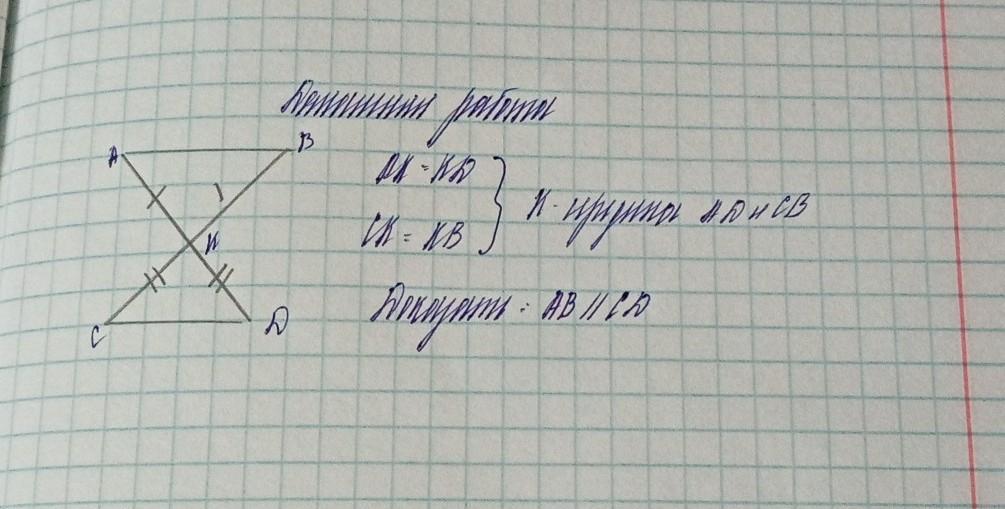 Домашняя работа
A
B
AK = KD
K - середина AD и CB
CK = KB
K
Доказать: AB || CD
C
D